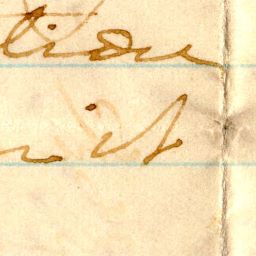 tion
it